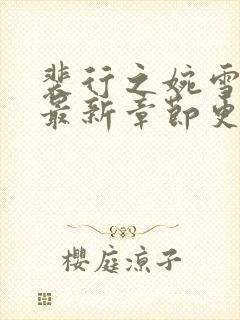 裴行之婉雪
最新章节更
樱庭凉子